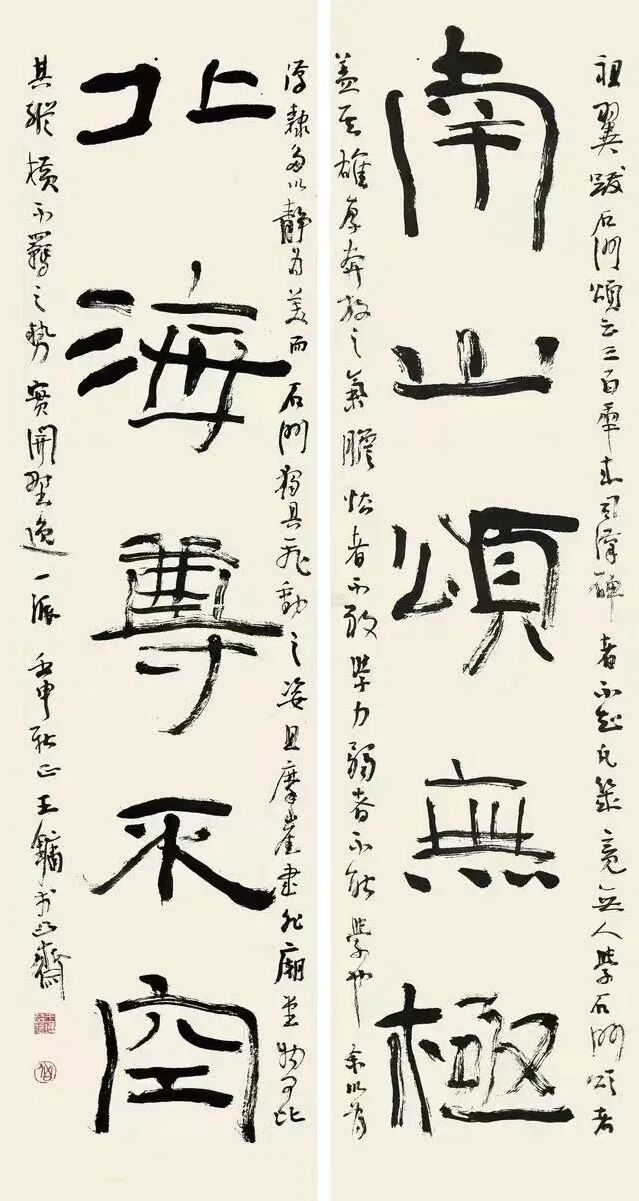 祖翼跋石門頌云三百年来習漢碑者不知凡幾竟无人學石門頌者
南山頌無極
蓋其雄厚奔放之氣膽怯者不敢學力弱者不能學也余以为
漢隸多以靜为美而石門獨具飛動之姿且摩崖書非廟堂物可比
北海尊不空
其縱橫不羈之勢實開野逸一派壬申秋王鏞齋